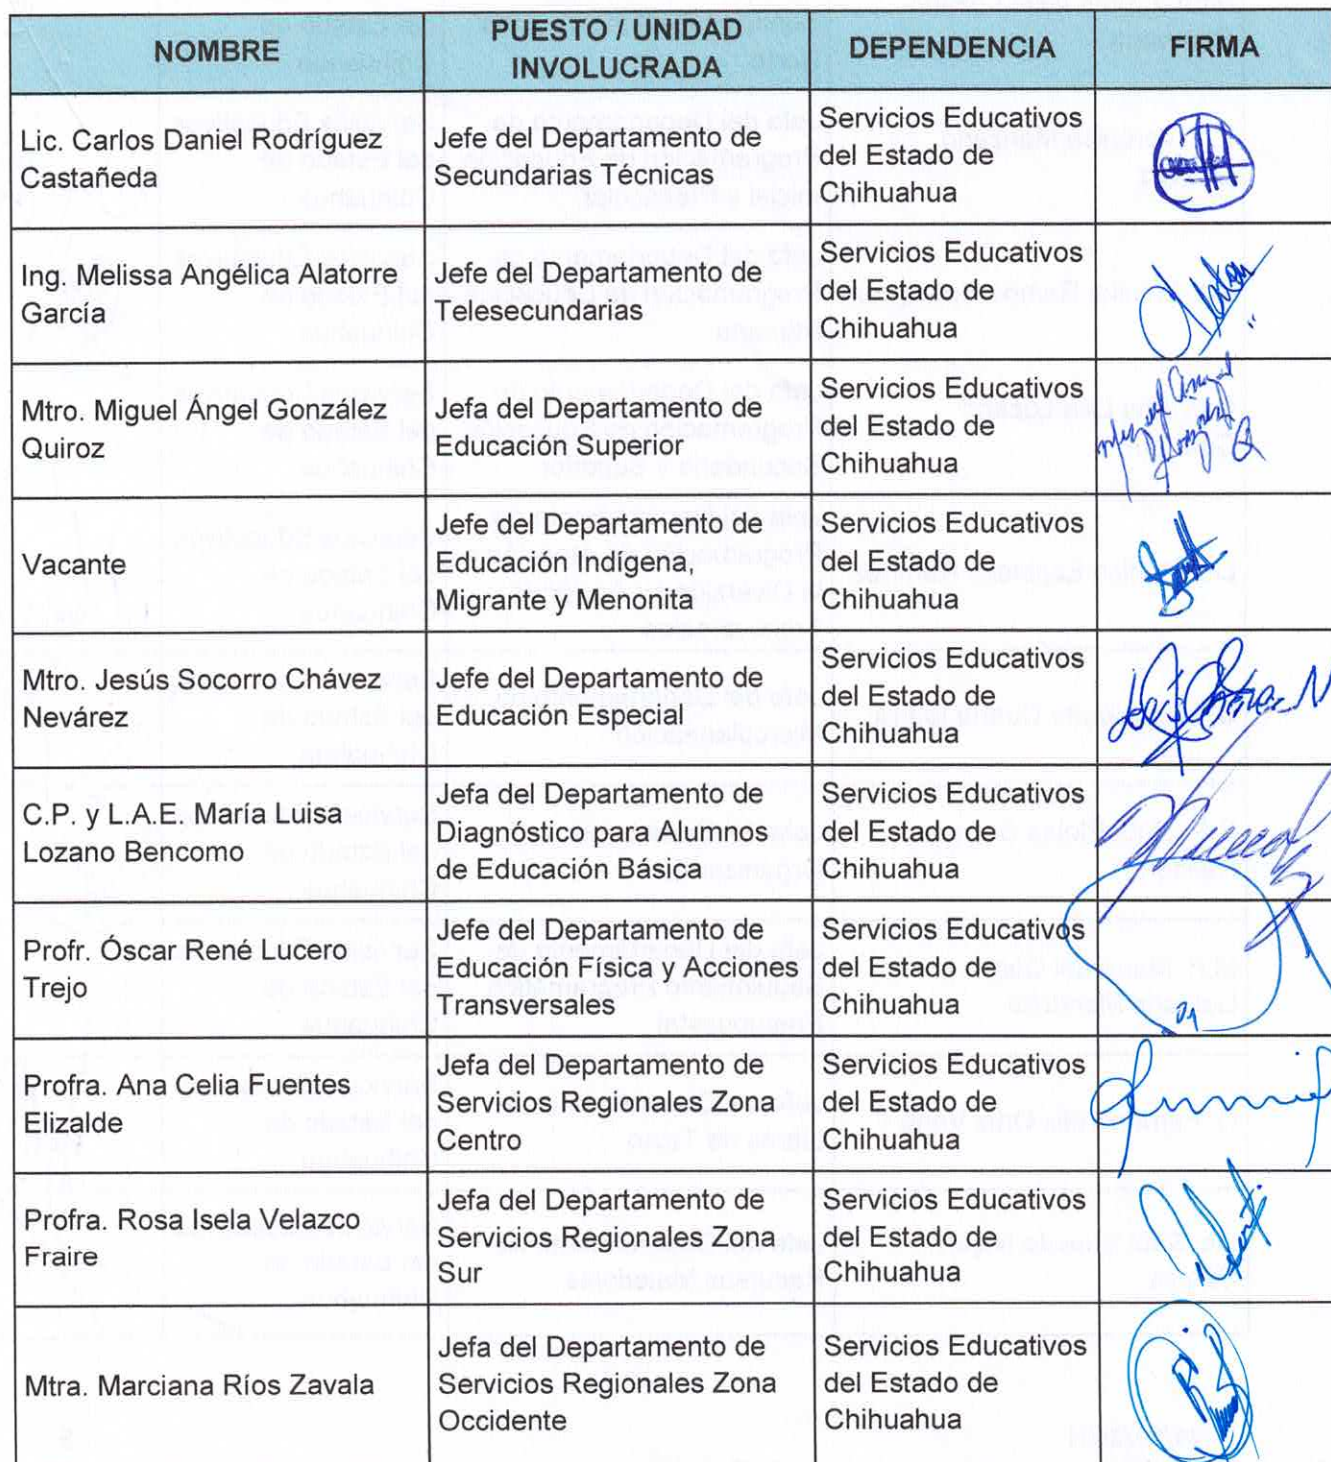 NOMBRE
PUESTO / UNIDAD
INVOLUCRADA
DEPENDENCIA
FIRMA
Lic. Carlos Daniel Rodríguez
Castañeda
Jefe del Departamento de
Secundarias Técnicas
Servicios Educativos
del Estado de
Chihuahua
Ing. Melissa Angélica Alatorre
García
Jefe del Departamento de
Telesecundarias
Servicios Educativos
del Estado de
Chihuahua
Mtro. Miguel Ángel González
Quiroz
Jefa del Departamento de
Educación Superior
Servicios Educativos
del Estado de
Chihuahua
Miguel Angel
González
Q
Vacante
Jefe del Departamento de
Educación Indígena,
Migrante y Menonita
Servicios Educativos
del Estado de
Chihuahua
Mtro. Jesús Socorro Chávez
Nevárez
Jefe del Departamento de
Educación Especial
Servicios Educativos
del Estado de
Chihuahua
C.P. y L.A.E. María Luisa
Lozano Bencomo
Jefa del Departamento de
Diagnóstico para Alumnos
de Educación Básica
Servicios Educativos
del Estado de
Chihuahua
Profr. Óscar René Lucero
Trejo
Jefe del Departamento de
Educación Física y Acciones
Transversales
Servicios Educativos
del Estado de
Chihuahua
Profra. Ana Celia Fuentes
Elizalde
Jefa del Departamento de
Servicios Regionales Zona
Centro
Servicios Educativos
del Estado de
Chihuahua
Profra. Rosa Isela Velazco
Fraire
Jefa del Departamento de
Servicios Regionales Zona
Sur
Servicios Educativos
del Estado de
Chihuahua
Mtra. Marciana Ríos Zavala
Jefa del Departamento de
Servicios Regionales Zona
Occidente
Servicios Educativos
del Estado de
Chihuahua